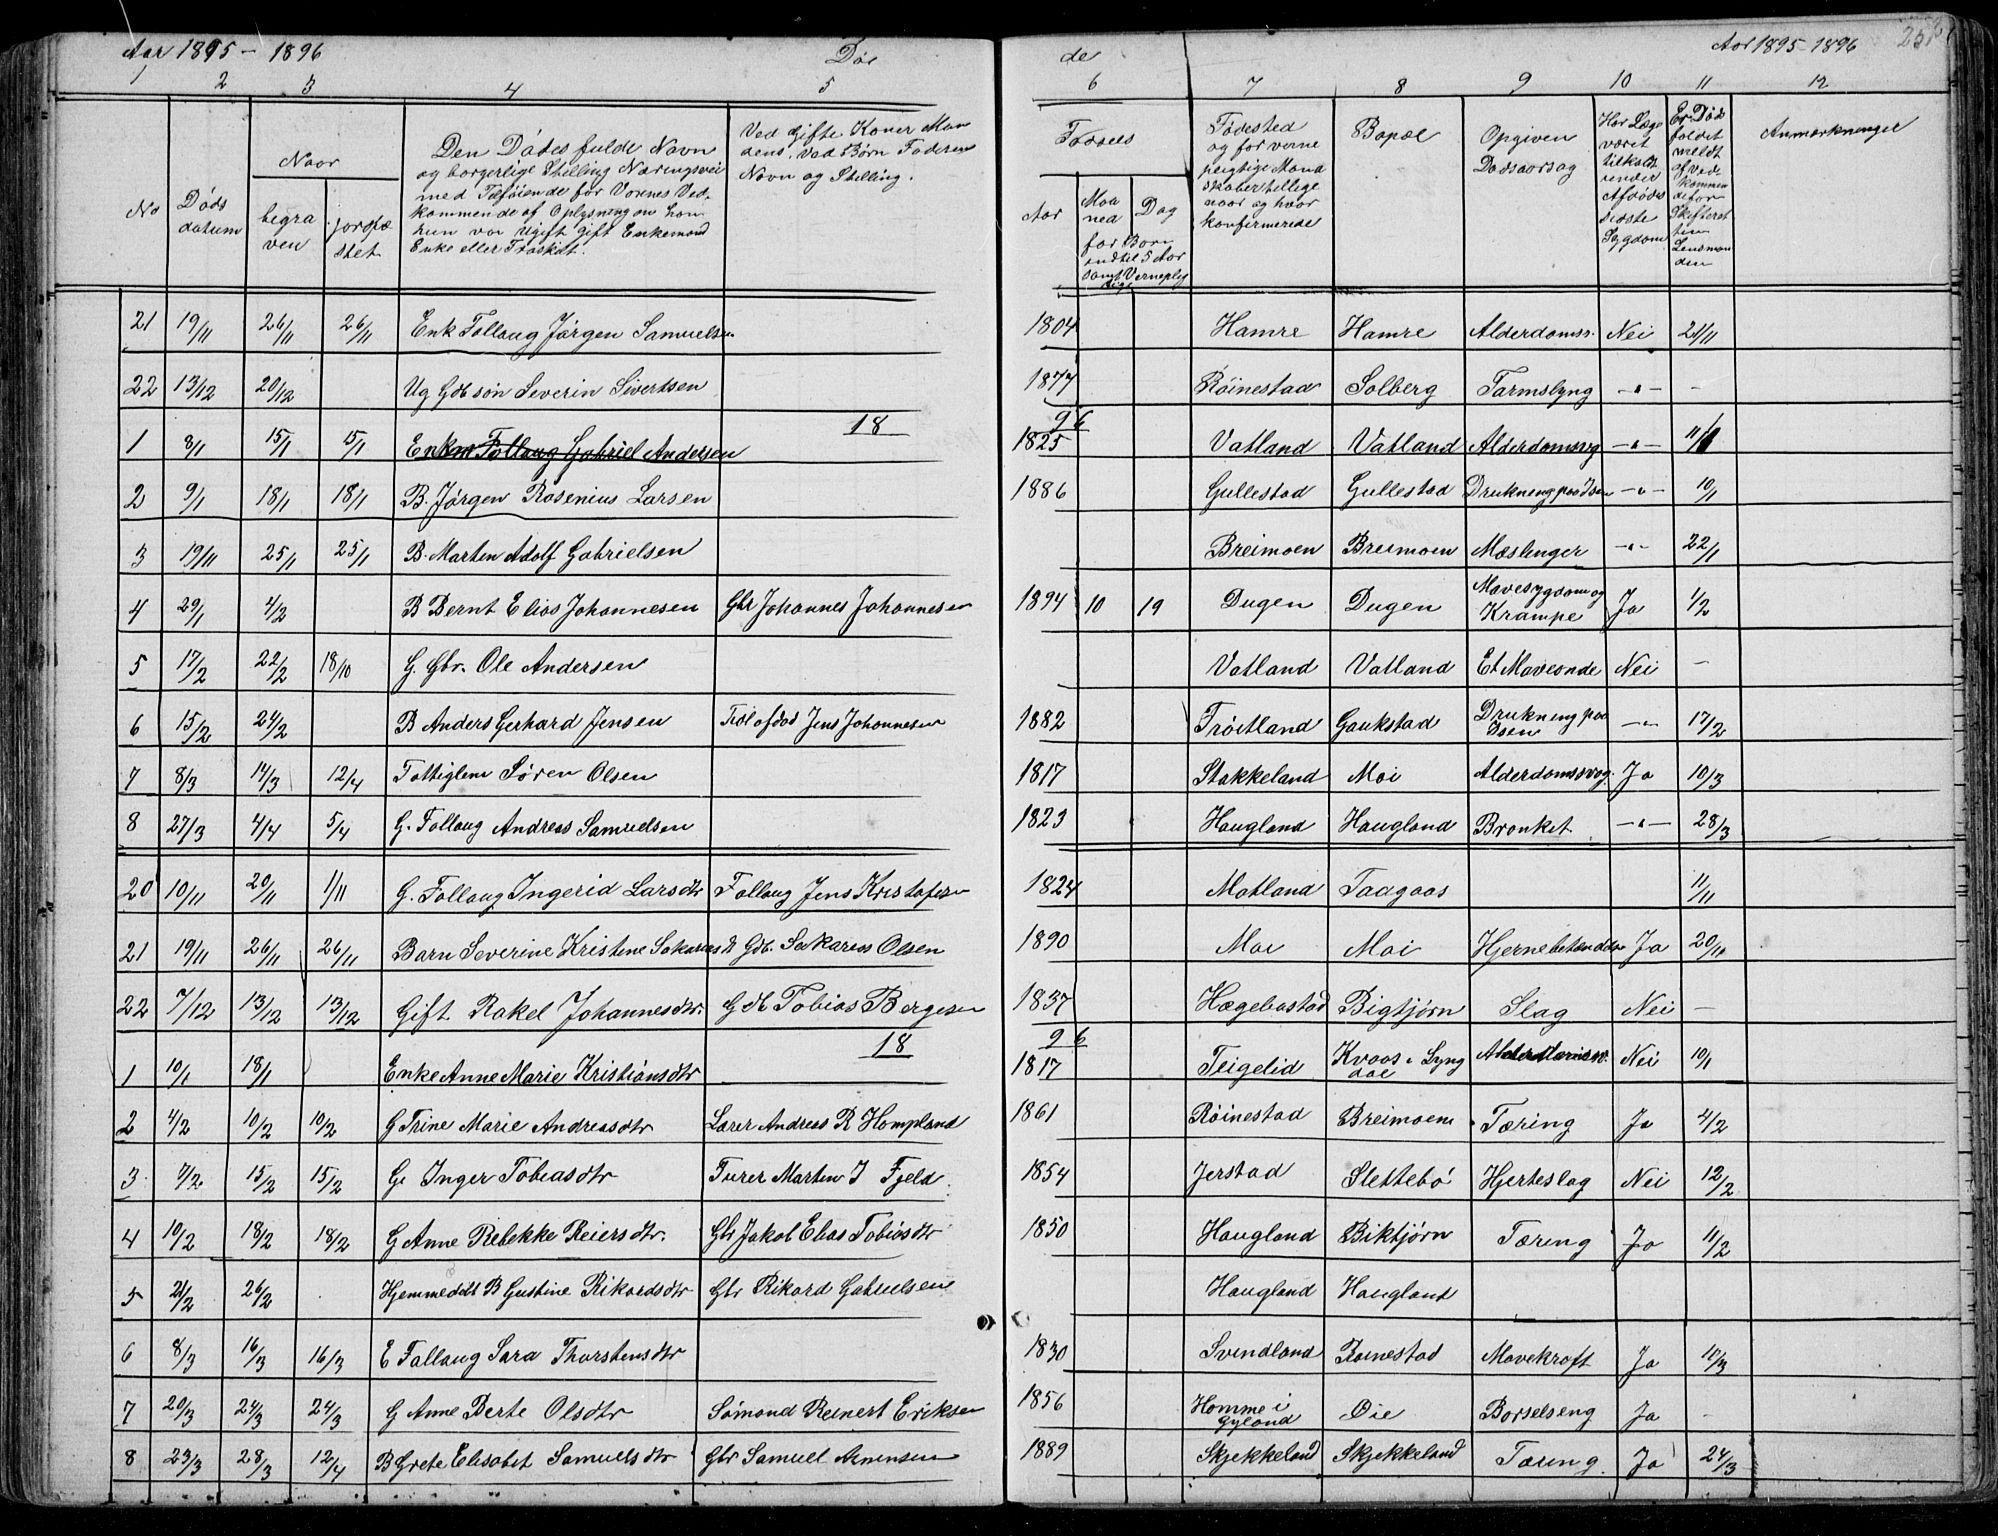 Aar 1895 - 1896 Dø de Aar 1895-1896
1 2 3 4 5 6 7 8 9 10 11 12
No
Døds datum
Naar
begra ven
jordfæ stet
Den Dødes fulde Navn
og borgerlige Stilling Næringsvei
med Tilføiende for Voxnes Ved-
kommende af Oplysning om han
hun var Ugift Gift Enkemand
Enke eller Fraskilt.
Ved Gifte Koner Man
dens, Ved Børn Faderens
Navn og Stilling.
Fødsels
Aar
Maa ned
Dag
for Børn
indtil 5 Aar
samt Verneplig
tige
Fødested
og for verne
pligtige Mand
skaber tillige
naar og hvor
konfirmerede
Bopæl
Opgiven
Dødsaarsag
Har Læge
været
tilkaldt
under
Afdødes
sidste
Sygdom
Er Døds
faldet
meldt
af Vede
kommen
de for
Skifteret
ten
Lensman
den
Anmærkninger
21 19/11 26/11 26/11 Enk Follaug Jørgen Samuelsen 1804 Hamre Hamre Alderdomss. Nei 21/11
22 13/12 20/12 Ug Gdb søn Severin Sivertsen 1877 Røinestad Solberg Tarmslyng -"- -
18 96
1 8/1 15/1 15/1 Enkm Follaug Gabriel Andersen 1825 Vatland Vatland Alderdomssvg -"- 11/1
2 9/1 18/1 18/1 B. Jørgen Rosenius Larsen 1886 Gullestad Gullestad Drukning paa Isen -"- 10/1
3 19/11 25/1 25/1 B. Marten Adolf Gabrielsen Breimoen Breimoen Mæslinger -"- 22/1
4 29/1 4/2 B Bernt Elias Johannesen Gbr Johannes Johannesen 1894 10 19 Dugen Dugen Mavesygdom og Krampe Ja 1/2
5 17/2 22/2 18/10 G. Gbr. Ole Andersen Vatland Vatland Et Maveonde Nei -
6 15/2 24/2 B Anders Gerhard Jensen Jens Johannesen 1882 Trøitland Gaukstad Drukning paa Isen -"- 17/2
7 8/3 14/3 12/4 Fattiglem Søren Olsen 1817 Stakkeland Moi Alderdomssvag. Ja 10/3
8 27/3 4/4 5/4 G. Follaug Andreas Samuelsen 1823 Haugland Haugland Bronket -"- 28/3
20 10/11 20/11 1/11 G. Follaug Ingerid Larsdtr Follaug Jens Kristofersen 1824 Matland Taagaas 11/11
21 19/11 26/11 26/11 Barn Severine Kristine Sakariasdt Gdb. Sakarias Olsen 1890 Moi Moi Hjernebetændelse Ja 20/11
22 7/12 13/12 13/12 Gift Rakel Johannesdtr. Gdb Tobias Bergesen 1837 Hægebostad Bigtjørn Slag Nei -
18 96
1 10/1 18/1 Enke Anne Marie Kristiansdtr 1817 Teigelid Kvaas i Lyng dal Nei 10/1
2 4/2 10/2 10/2 G Trine Marie Andreasdtr Lærer Andreas R Hompland 1861 Røinestad Breimoen Tæring Ja 4/2
3 7/2 15/2 15/2 G. Inger Tobiasdtr Furer Marten I Fjeld 1854 Jerstad Slettebø Hjerteslag Nei 12/2
4 10/2 18/2 18/2 G Anne Rebekke Reiersdtr. Gbr Jakob Elias Tobiasdtr 1850 Haugland Biktjørn Tæring Ja 11/2
5 21/2 26/2 Hjemmedøbt B Gustine Rikardsdtr Gbr Rikard Gabrielsen Haugland Haugland
6 8/3 16/3 16/3 E Follaug Sara Thorstensdtr 1830 Svindland Røinestad Mavekræft Ja 10/3
7 20/3 24/3 24/3 G Anne Berte Olsdtr Sømand Reinert Eriksen 1856 Homme i Gyland Øie Barselseng Ja -
8 23/3 28/3 12/4 B Grete Elisabet Samuelsdtr Gbr Samuel Arnensen 1889 Skjekkeland Skjekkeland Tæring. Ja 24/3